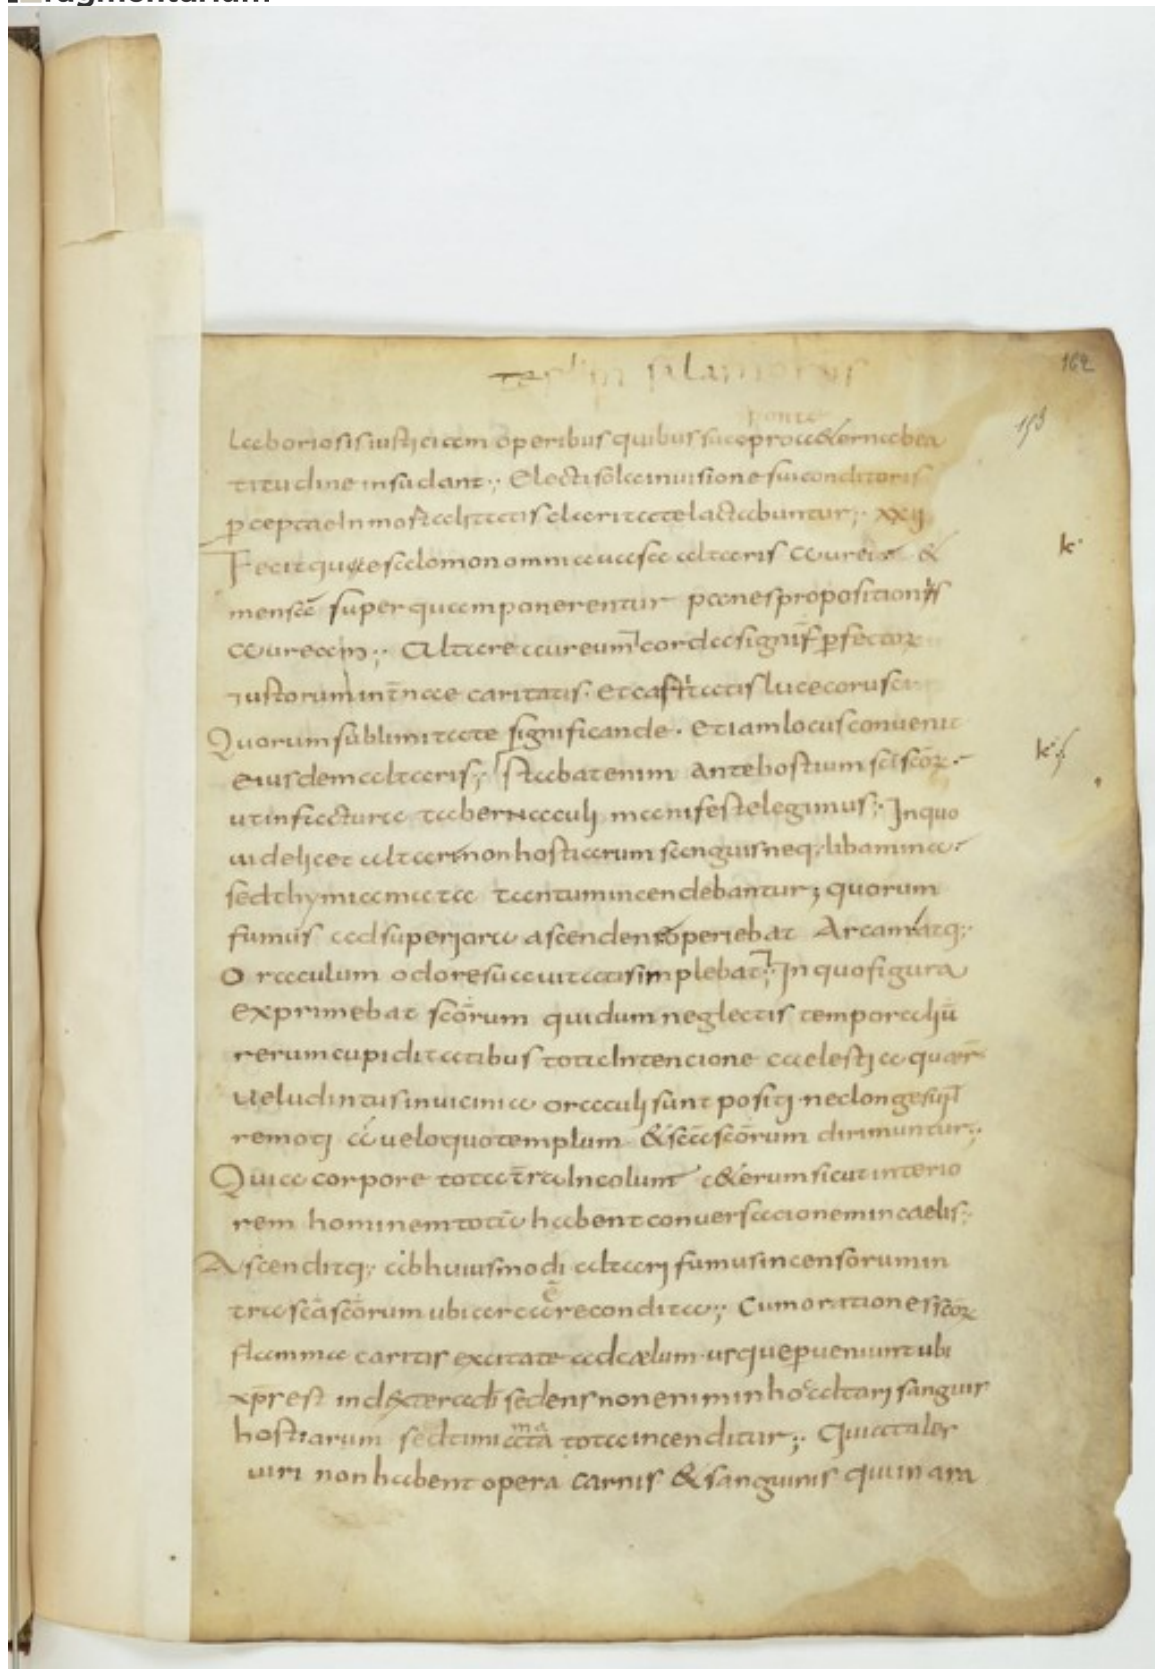 162
153
laboriosis iustitiam operibus quibus sua pro &ernabea
titudine insudant:; Electi sola in uisione sui conditoris
p̱ceptae In mortalitatis claritate lactabuntur;· xxij
Fecitque salomon omnia uasa altaris aurea &
k·
mensā super quam ponerentur panes propositionis
auream;· Altare aureum corda signif p̱fector
iustorum intnae caritatis. et castitatis luce corusca
Quorum sublimitate significande · Etiam locus conuenit
k·;
eiusdem altaris:; stabat enim ante hostium scī scōr·
ut in factura tabernaculi manifeste legimus;· In quo
uidelicet altari non hostiarum sanguis neq; libamina·
sed thymiamata tantum incendebantur; quorum
fumus ad superiora ascendens operiebat Arcam atq;·
oraculum odore suauitatis implebat;· In quo figura
exprimebat scōrum qui dum neglectis temporaliū
rerum cupiditatibus tota Intencione caelestia quær
uelud intus in uicinia oraculi sunt positi · nec longe
remoti a uelo quo templum & scā scōrum dirimuntur;·
Qui a corpore tota t̄ra Incolunt c&erum sicut interio
rem hominem totū habent conuersacionem in caelis:·
Ascenditq;· ab huiusmodi altari fumus incensorum in
tra scā scōrum ubi arca ē recondita:; Cum oratione scōr
flamma caritis excitate ad cælum · usque p̱ueniunt ubi
xp̄s est in dextera dī sedens non enim in hoc altari sanguis
hostiarum sed timiamata tota incenditur;· Quia tales
uiri non habent opera carnis & sanguinis qui in ara